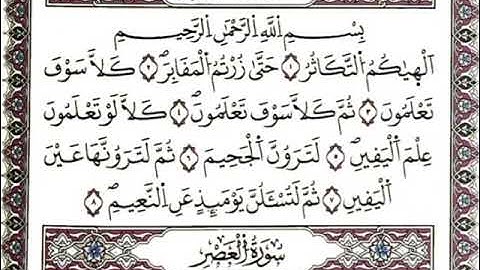 بِسْمِ اللَّهِ الرَّحْمَٰنِ الرَّحِيمِ
أَلْهَىٰكُمُ التَّكَاثُرُ ﴿١﴾ حَتَّىٰ زُرْتُمُ الْمَقَابِرَ ﴿٢﴾ كَلَّا سَوْفَ
تَعْلَمُونَ ﴿٣﴾ ثُمَّ كَلَّا سَوْفَ تَعْلَمُونَ ﴿٤﴾ كَلَّا لَوْ تَعْلَمُونَ
عِلْمَ الْيَقِينِ ﴿٥﴾ لَتَرَوُنَّ الْجَحِيمَ ﴿٦﴾ ثُمَّ لَتَرَوُنَّهَا عَيْنَ
الْيَقِينِ ﴿٧﴾ ثُمَّ لَتُسْئَلُنَّ يَوْمَئِذٍ عَنِ النَّعِيمِ ﴿٨﴾
سُورَةُ الْعَصْرِ